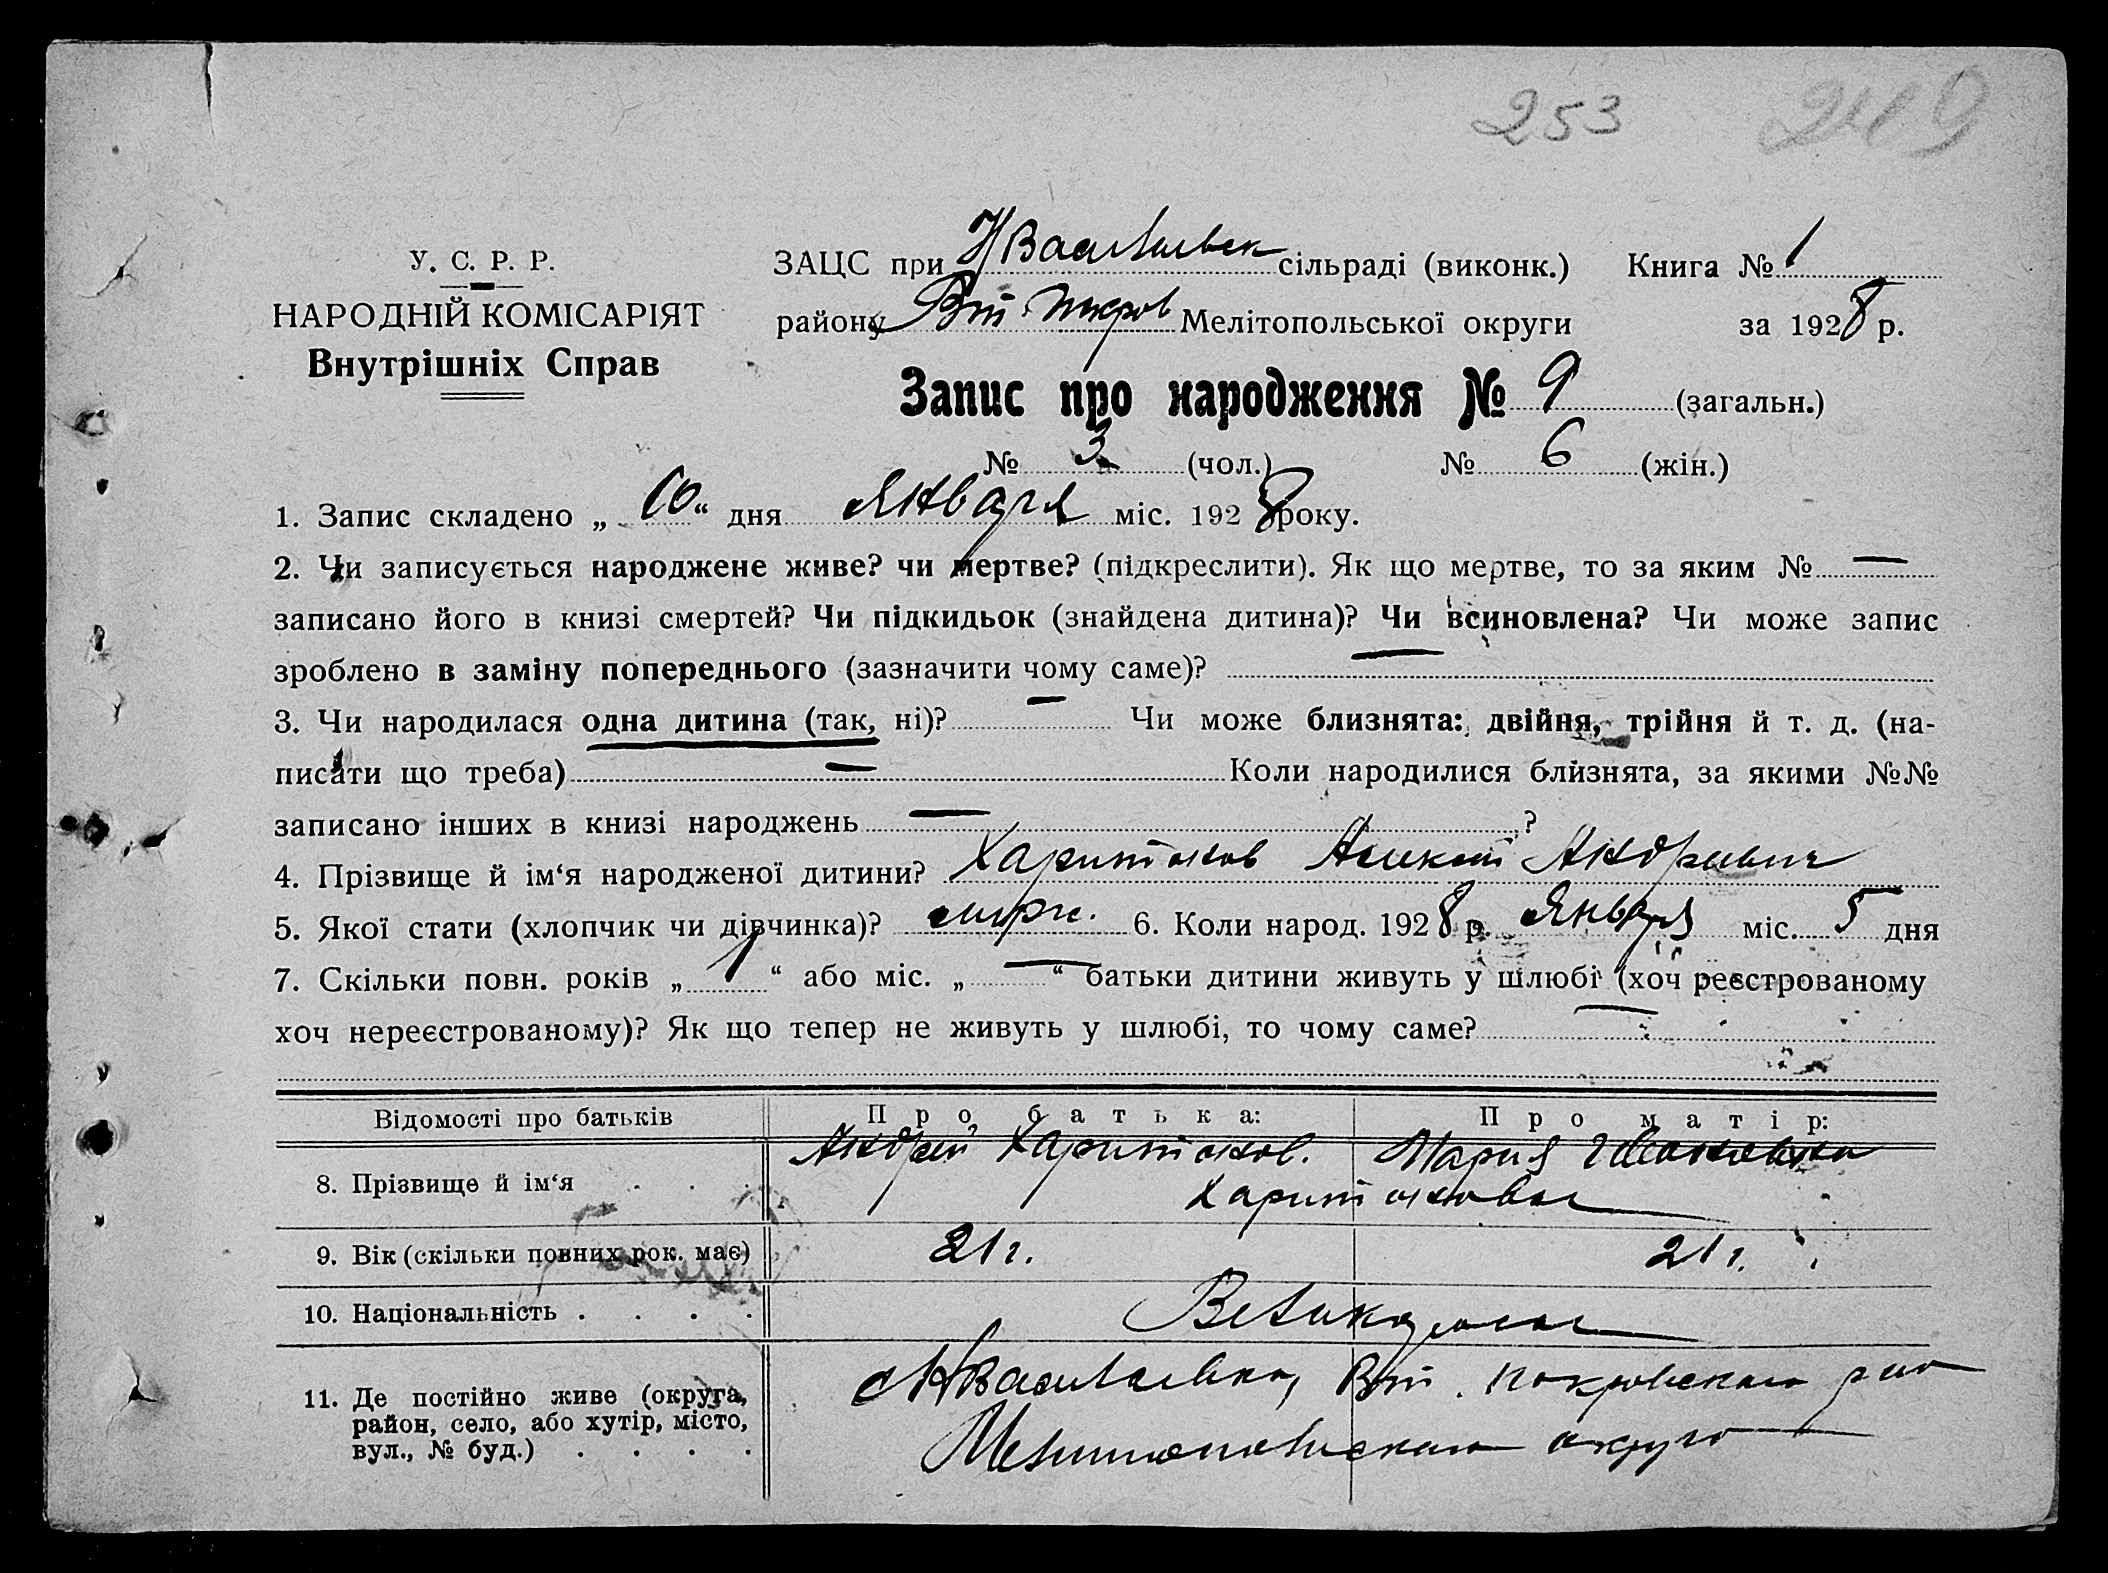 253 249
У. С. Р. Р.
НАРОДНІЙ КОМІСАРІЯТ
Внутрішніх Справ
ЗАЦС при НВасильевск сільраді (виконк.) Книга № 1
району Вт-Покров Мелітопольської округи за 1928 р.
Запис про народження № 9 (загальн.)
№ 3 (чол.) № 6 (жін.)
1. Запис складено „ 10 “ дня Января міс. 1928 року.
2. Чи записується народжене живе? чи мертве? (підкреслити). Як що мертве, то за яким № —
записано його в книзі смертей? Чи підкидьок (знайдена дитина)? Чи всиновлена? Чи може запис
зроблено в заміну попереднього (зазначити чому саме)? —
3. Чи народилася одна дитина (так, ні)? — Чи може близнята: двійня, трійня й т. д. (на-
писати що треба) — Коли народилися близнята, за якими №№
записано інших в книзі народжень — ?
4. Прізвище й ім‘я народженої дитини? Харитонов Андревич
5. Якої стати (хлопчик чи дівчинка)? 6. Коли народ. 1928 р. Января міс. 5 дня
7. Скільки повн. років „ 1 “ або міс. „ — “ батьки дитини живуть у шлюбі (хоч реєстрованому
хоч нереєстрованому)? Як що тепер не живуть у шлюбі, то чому саме? —
Відомості про батьків Про батька: Про матір:
8. Прізвище й ім‘я . . . Андрей Харитонов. Мария Ивановна
Харитоновы
9. Вік (скільки повних рок. має) 21 г. 21 г.
10. Національність . . . . Великороссы
11. Де постійно живе (округа,
район, село, або хутір, місто,
вул., № буд.) . . . .
с НВасильевка, Вт. Покровского р-на
Мелитопольского округа